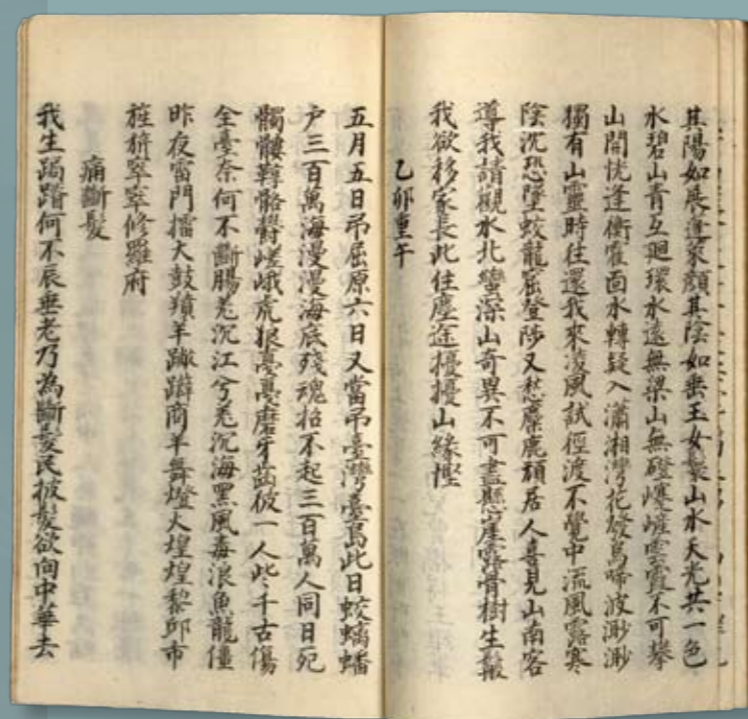 其陽如展蓬萊顏其陰如垂玉女鬟山水天光共一色
水碧山青互廻環水遠無梁山無磴巉巗雲霞不可攀
山開恍逢衡霍面水轉疑入瀟湘灣花發鳥啼波渺渺
獨有山靈時往還我來凌風試徑渡不覺中流風露寒
陰沉恐墮蛟龍窟登陟又愁麋鹿頑居人喜見山南客
導我請觀水北蠻深山奇異不可盡懸崖露骨樹生鬚
我欲移家長此住塵途擾擾山緣慳
乙卯重午
五月五日弔屈原六日又當弔臺灣臺島此日蛟螭蟠
户三百萬海漫漫海底殘魂招不起三百萬人同日死
髑髏鞟骼鬱嵯峨虎狼憂憂磨牙齒彼一人些千古傷
全臺奈何不斷腸羌沉江兮羌沉海黑風毒浪魚龍僵
昨夜雷門擂大鼓羵羊踙躃商羊舞燈火煌煌黎邱市
旌旂窣窣修羅府
痛斷髮
我生跼蹐何不辰垂老乃為斷髮民披髮欲向中華去